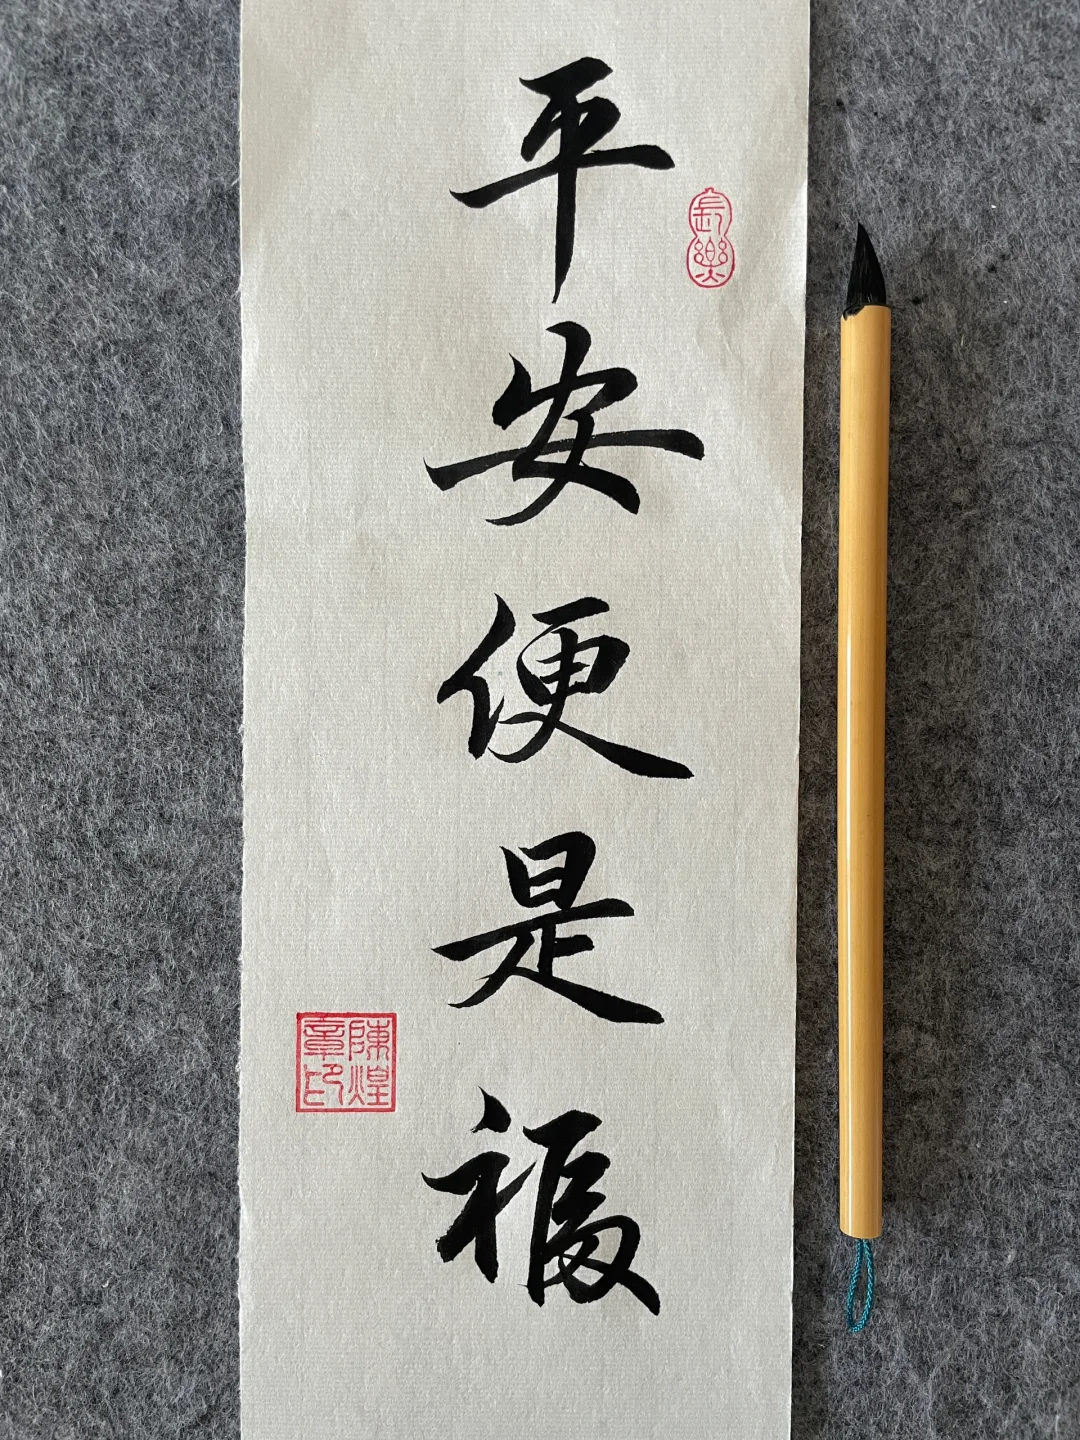 平安便是福
長樂
陳煌
章印